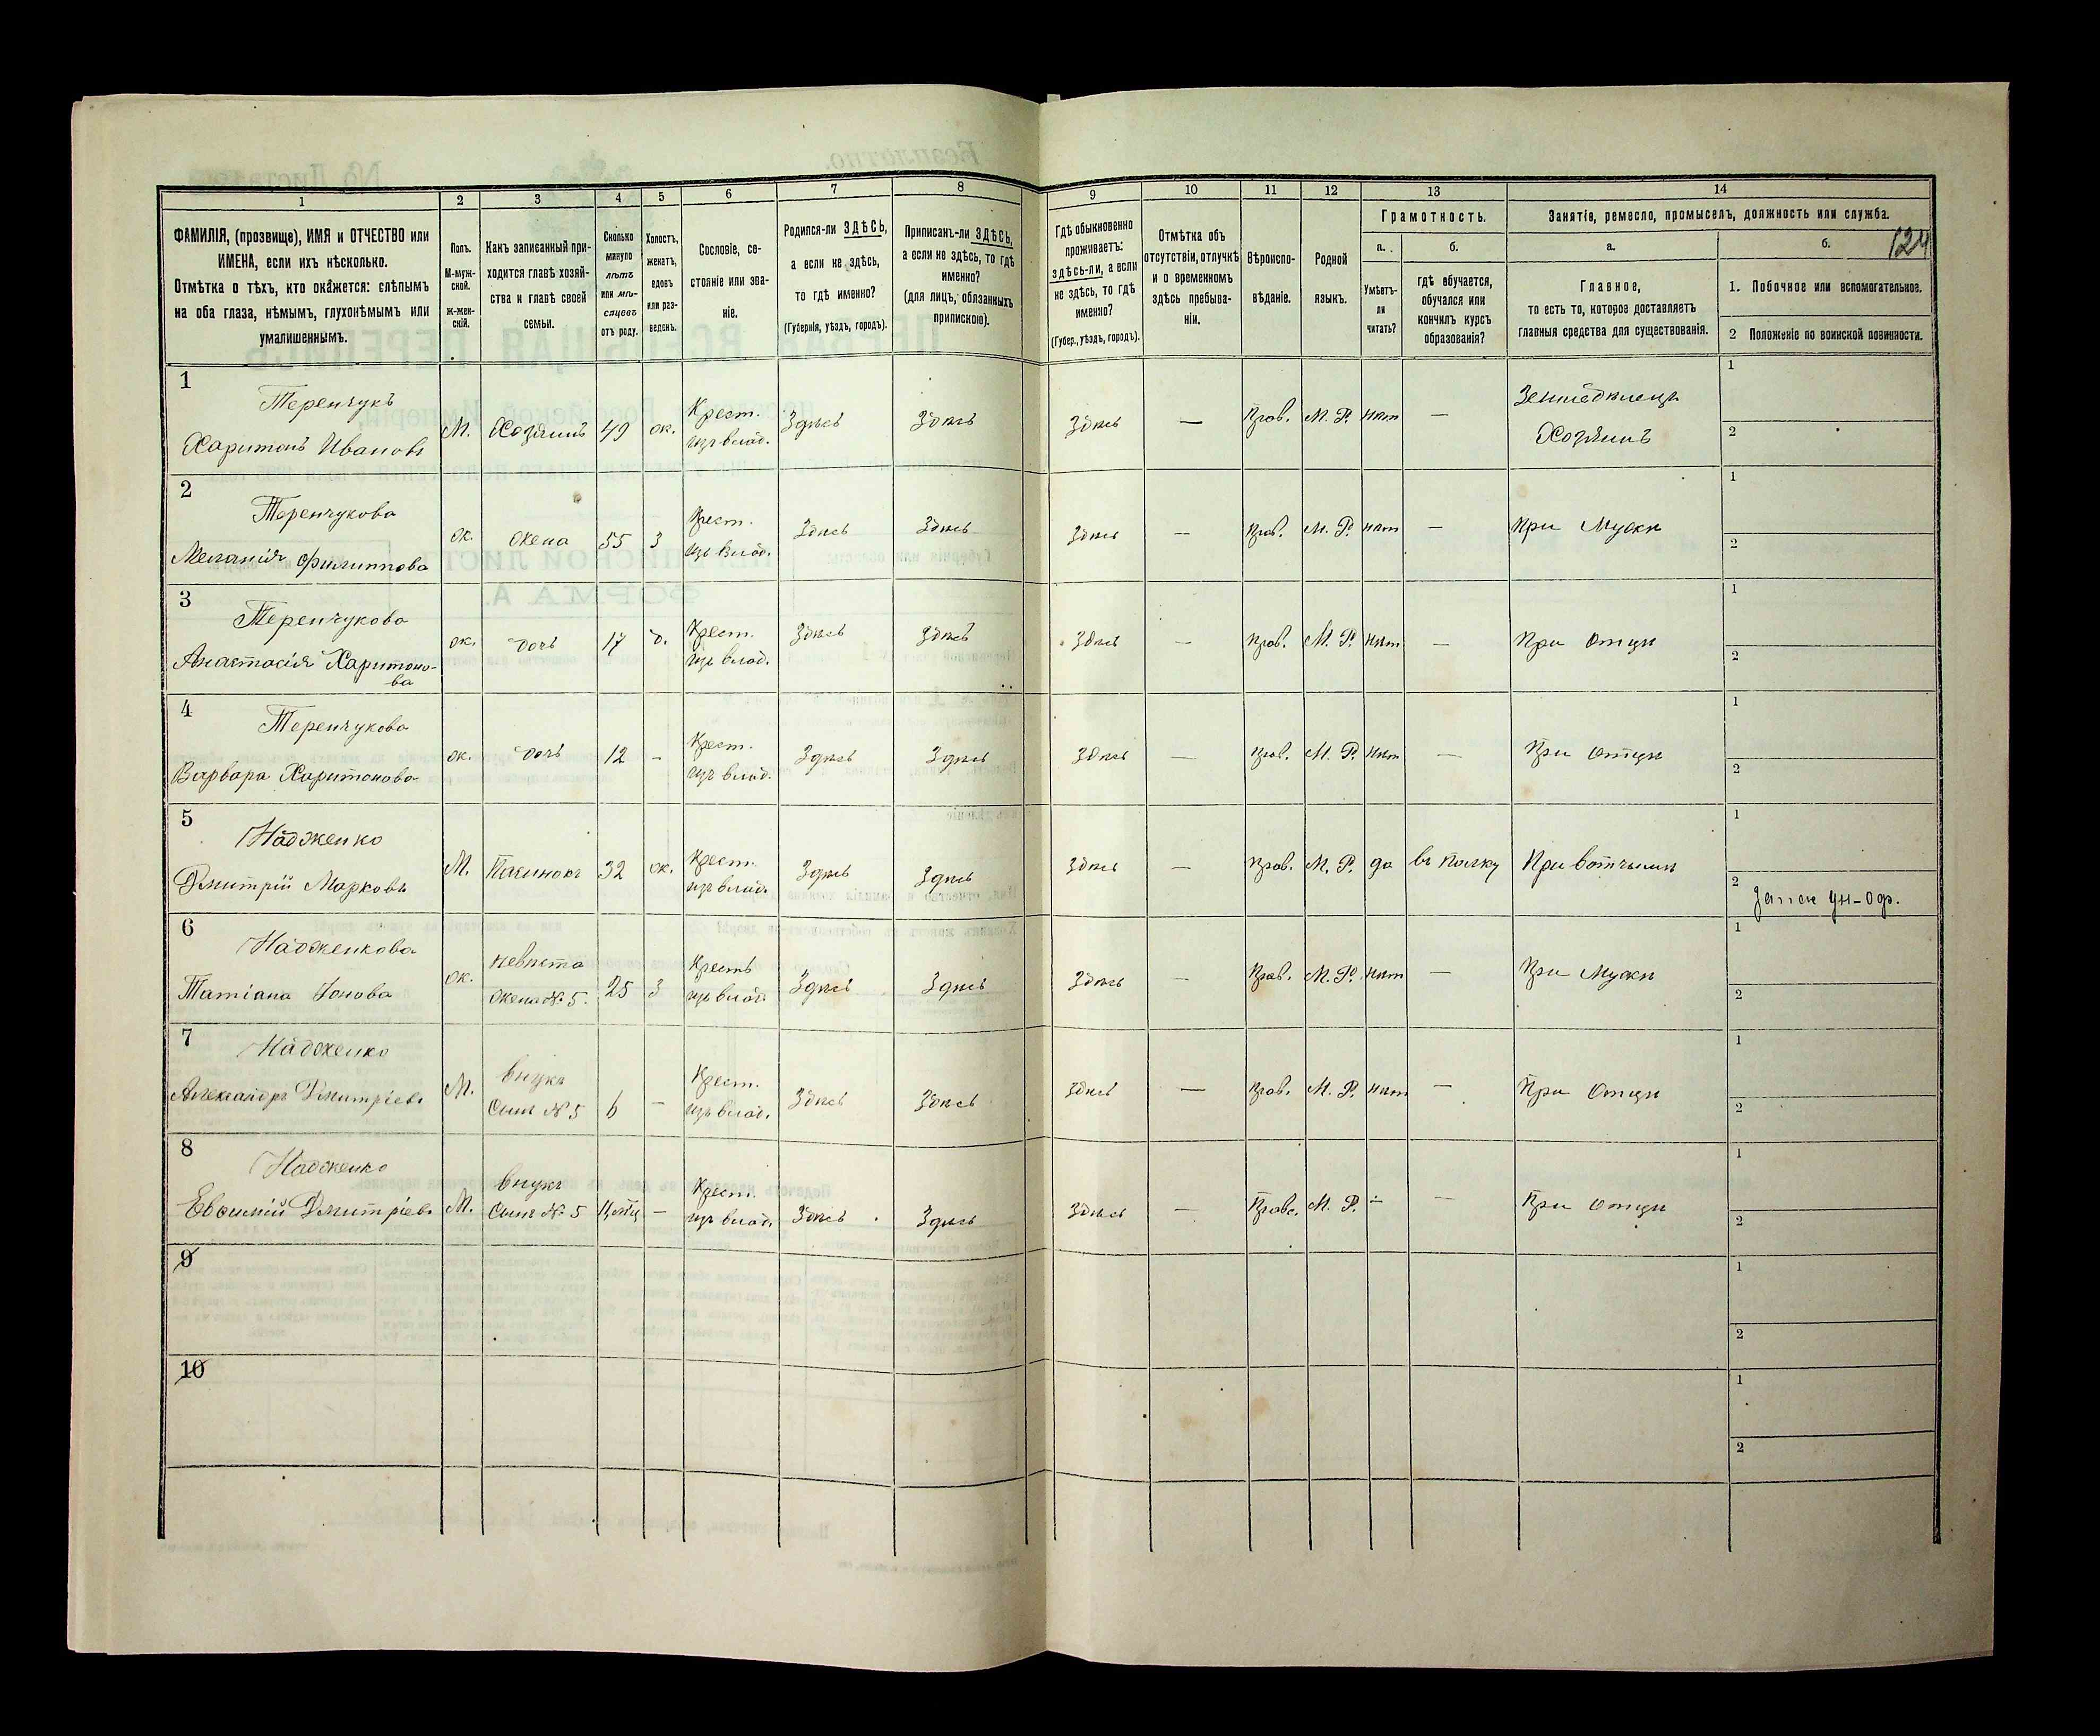 1 2 3 4 5 6 7 8 9 10 11 12 13 14
ФАМИЛІЯ, (прозвище), ИМЯ и ОТЧЕСТВО или ИМЕНА, если ихъ нѣсколько.
Отмѣтка о тѣхъ, кто окажется: слѣпымъ на оба глаза, нѣмымъ, глухонѣмымъ или умалишеннымъ.
Полъ.
М-мужской.
ж-женскій.
Какъ записанный приходится главѣ хозяйства и главѣ своей семьи.
Сколько минуло лѣтъ или мѣсяцевъ отъ роду.
Холостъ, женатъ, вдовъ или разведенъ.
Сословіе, состояніе или званіе.
Родился-ли ЗДѢСЬ, а если не здѣсь, то гдѣ именно?
(Губернія, уѣздъ, городъ).
Приписанъ-ли ЗДѢСЬ, а если не здѣсь, то гдѣ именно?
(для лицъ, обязанныхъ припискою).
Гдѣ обыкновенно проживаетъ: здѣсь-ли, а если не здѣсь, то гдѣ именно?
(Губер., уѣздъ, городъ).
Отмѣтка объ отсутствіи, отлучкѣ и о временномъ здѣсь пребываніи.
Вѣроисповѣданіе.
Родной языкъ.
Грамотность.
а.
Умѣетъ-ли читать?
б.
гдѣ обучается, обучался или кончилъ курсъ образованія?
Занятіе, ремесло, промыселъ, должность или служба.
а.
Главное,
то есть то, которое доставляетъ главныя средства для существованія.
б.
124
1. Побочное или вспомогательное.
2 Положеніе по воинской повинности.
1 Теренчукъ
Харитонъ Ивановъ М. Хозяинъ 49 ж. Крест. изъ влад. Здѣсь Здѣсь Здѣсь — Прав. М. Р. нѣт — Земледѣлецъ Хозяинъ 1 2
2 Теренчукова
Меланія Филиппова ж. жена 55 з Крест. изъ влад. Здѣсь Здѣсь Здѣсь — Прав. М. Р. нѣт — При Мужѣ 1 2
3 Теренчукова
Анастасія Харитоно-
ва ж. дочь 17 д. Крест. изъ влад. Здѣсь Здѣсь Здѣсь — Прав. М. Р. нѣт — При Отцѣ 1 2
4 Теренчукова
Варвара Харитонова ж. дочь 12 - Крест. изъ влад. Здѣсь Здѣсь Здѣсь — Прав. М. Р. нѣт — При Отцѣ 1 2
5 Надженко
Дмитрій Марковъ М. Пасинокъ 32 ж. Крест. изъ влад. Здѣсь Здѣсь Здѣсь — Прав. М. Р. да въ полку При вотчымѣ 1 2 Запас Ун-Оф.
6 Надженкова
Татіана Іонова ж. невѣста жена № 5. 25 з Крест изъ влад. Здѣсь Здѣсь Здѣсь — Прав. М. Р. нѣт — При Мужѣ 1 2
7 Надженко
Александръ Дмитріевъ М. внукъ Сынъ № 5 6 — Крест. изъ влад. Здѣсь Здѣсь Здѣсь — Прав. М. Р. нѣт — При Отцѣ 1 2
8 Надженко
Дмитріевъ М. внукъ Сынъ № 5 — Крест. изъ влад. Здѣсь Здѣсь Здѣсь — Правс. М. Р. — — При Отцѣ 1 2
9 1 2
10 1 2